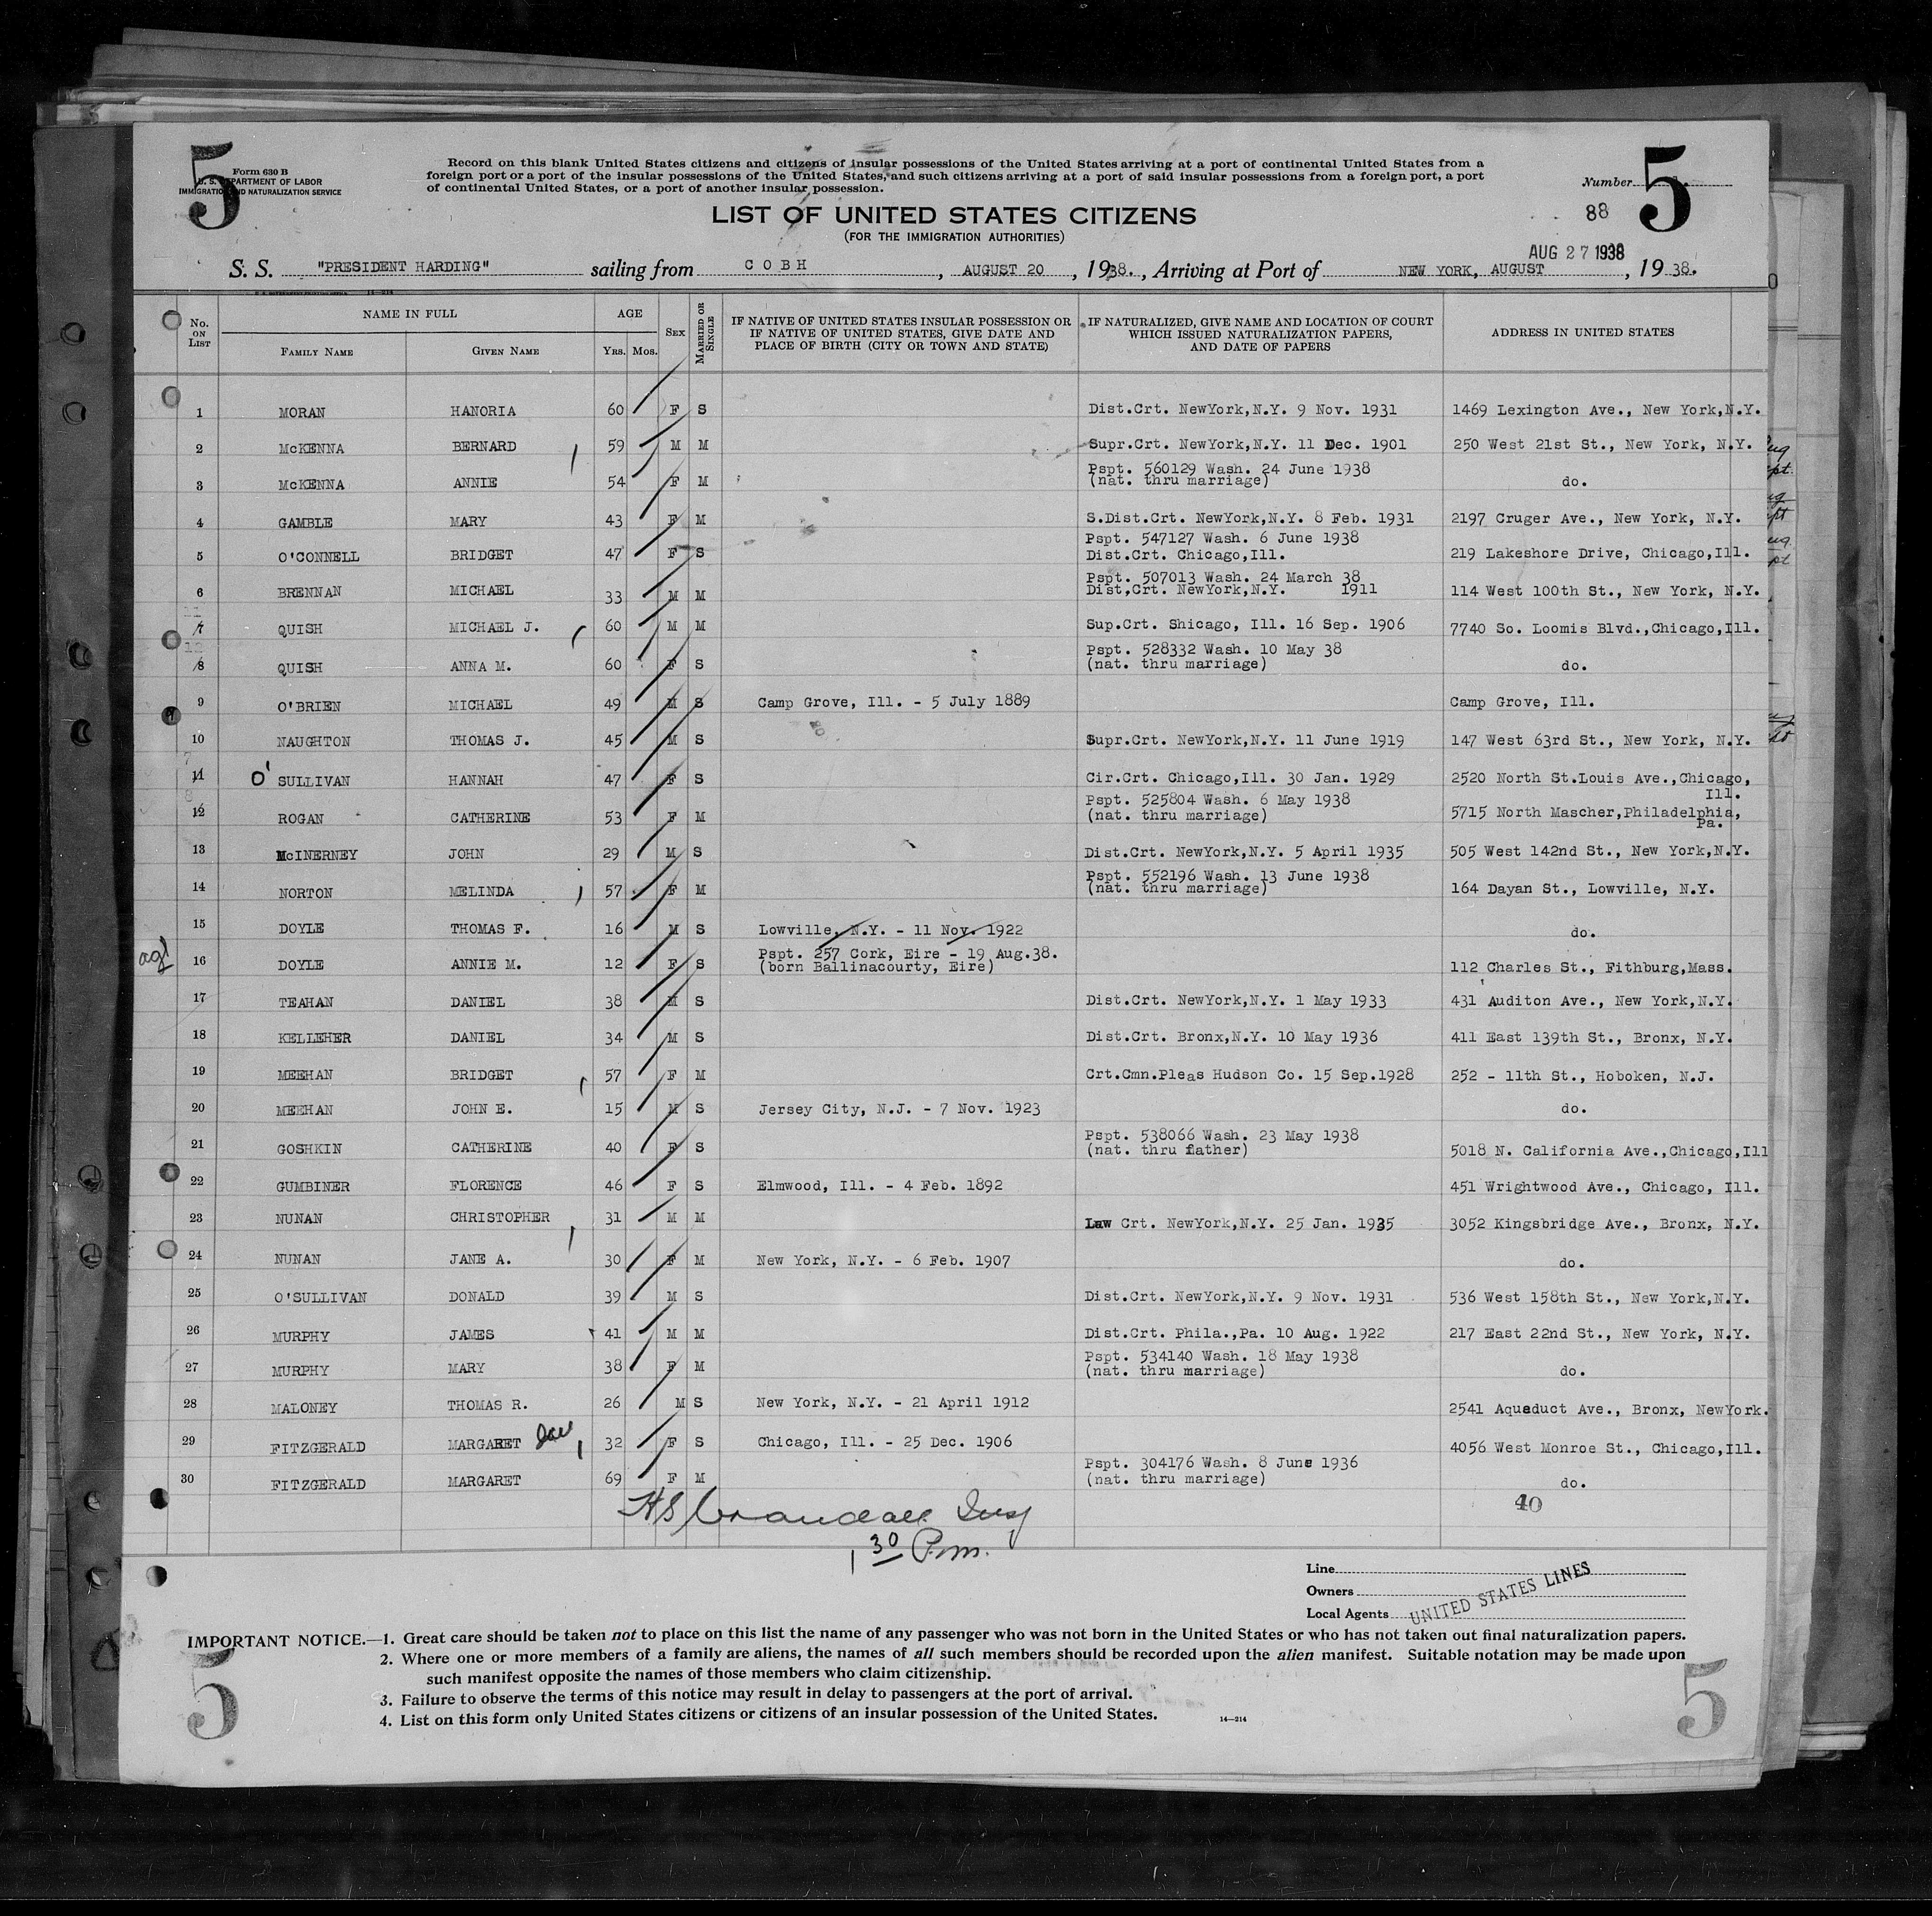 5
5
Form 630 B
U. S. DEPARTMENT OF LABOR
IMMIGRATION AND NATURALIZATION SERVICE
Record on this blank United States citizens and citizens of insular possessions of the United States arriving at a port of continental United States from a
foreign port or a port of the insular possessions of the United States, and such citizens arriving at a port of said insular possessions from a foreign port, a port
of continental United States, or a port of another insular possession.
Number
88
LIST OF UNITED STATES CITIZENS
(FOR THE IMMIGRATION AUTHORITIES)
AUG 27 1938
S. S. "PRESIDENT HARDING" sailing from COBH, AUGUST 20, 1938., Arriving at Port of NEW YORK, AUGUST, 1938.
No. ON LIST NAME IN FULL FAMILY NAME GIVEN NAME AGE YRS. MOS. SEX MARRIED OR SINGLE
IF NATIVE OF UNITED STATES INSULAR POSSESSION OR IF NATIVE OF UNITED STATES, GIVE DATE AND PLACE OF BIRTH (CITY OR TOWN AND STATE)
IF NATURALIZED, GIVE NAME AND LOCATION OF COURT WHICH ISSUED NATURALIZATION PAPERS, AND DATE OF PAPERS
ADDRESS IN UNITED STATES
1 MORAN HANORIA 60 F S Dist.Crt. NewYork,N.Y. 9 Nov. 1931 1469 Lexington Ave., New York,N.Y.
2 McKENNA BERNARD 59 M M Supr.Crt. NewYork,N.Y. 11 Dec. 1901 250 West 21st St., New York, N.Y.
3 McKENNA ANNIE 54 F M Pspt. 560129 Wash. 24 June 1938 (nat. thru marriage) do.
4 GAMBLE MARY 43 F M S.Dist.Crt. NewYork,N.Y. 8 Feb. 1931 2197 Cruger Ave., New York, N.Y.
5 O'CONNELL BRIDGET 47 F S Pspt. 547127 Wash. 6 June 1938 Dist.Crt. Chicago,Ill. 219 Lakeshore Drive, Chicago,Ill.
6 BRENNAN MICHAEL 33 M M Pspt. 507013 Wash. 24 March 38 Dist,Crt. NewYork,N.Y. 1911 114 West 100th St., New York, N.Y.
11
7 QUISH MICHAEL J. 60 M M Sup.Crt. Shicago, Ill. 16 Sep. 1906 7740 So. Loomis Blvd.,Chicago,Ill.
12
8 QUISH ANNA M. 60 F S Pspt. 528332 Wash. 10 May 38 (nat. thru marriage) do.
9 O'BRIEN MICHAEL 49 M S Camp Grove, Ill. - 5 July 1889 Camp Grove, Ill.
10 NAUGHTON THOMAS J. 45 M S Supr.Crt. NewYork,N.Y. 11 June 1919 147 West 63rd St., New York, N.Y.
7
11 O' SULLIVAN HANNAH 47 F S Cir.Crt. Chicago,Ill. 30 Jan. 1929 2520 North St.Louis Ave.,Chicago, Ill.
8
12 ROGAN CATHERINE 53 F M Pspt. 525804 Wash. 6 May 1938 (nat. thru marriage) 5715 North Mascher,Philadelphia, Pa.
13 McINERNEY JOHN 29 M S Dist.Crt. NewYork,N.Y. 5 April 1935 505 West 142nd St., New York,N.Y.
14 NORTON MELINDA 57 F M Pspt. 552196 Wash. 13 June 1938 (nat. thru marriage) 164 Dayan St., Lowville, N.Y.
15 DOYLE THOMAS F. 16 M S Lowville, N.Y. - 11 Nov. 1922 do.
16 DOYLE ANNIE M. 12 F S Pspt. 257 Cork, Eire - 19 Aug.38. (born Ballinacourty, Eire) 112 Charles St., Fithburg,Mass.
17 TEAHAN DANIEL 38 M S Dist.Crt. NewYork,N.Y. 1 May 1933 431 Auditon Ave., New York,N.Y.
18 KELLEHER DANIEL 34 M S Dist.Crt. Bronx,N.Y. 10 May 1936 411 East 139th St., Bronx, N.Y.
19 MEEHAN BRIDGET 57 F M Crt.Cmn.Pleas Hudson Co. 15 Sep.1928 252 - 11th St., Hoboken, N.J.
20 MEEHAN JOHN E. 15 M S Jersey City, N.J. - 7 Nov. 1923 do.
21 GOSHKIN CATHERINE 40 F S Pspt. 538066 Wash. 23 May 1938 (nat. thru father) 5018 N. California Ave.,Chicago,Ill
22 GUMBINER FLORENCE 46 F S Elmwood, Ill. - 4 Feb. 1892 451 Wrightwood Ave., Chicago, Ill.
23 NUNAN CHRISTOPHER 31 M M Law Crt. NewYork,N.Y. 25 Jan. 1935 3052 Kingsbridge Ave., Bronx, N.Y.
24 NUNAN JANE A. 30 F M New York, N.Y. - 6 Feb. 1907 do.
25 O'SULLIVAN DONALD 39 M S Dist.Crt. NewYork,N.Y. 9 Nov. 1931 536 West 158th St., New York,N.Y.
26 MURPHY JAMES 41 M M Dist.Crt. Phila.,Pa. 10 Aug. 1922 217 East 22nd St., New York, N.Y.
27 MURPHY MARY 38 F M Pspt. 534140 Wash. 18 May 1938 (nat. thru marriage) do.
28 MALONEY THOMAS R. 26 M S New York, N.Y. - 21 April 1912 2541 Aqueduct Ave., Bronx, NewYork.
29 FITZGERALD MARGARET 32 F S Chicago, Ill. - 25 Dec. 1906 4056 West Monroe St., Chicago,Ill.
30 FITZGERALD MARGARET 69 F M Pspt. 304176 Wash. 8 June 1936 (nat. thru marriage) do.
40
HS Crandall Insp
1 30 P.m.
Line
Owners
Local Agents UNITED STATES LINES
IMPORTANT NOTICE.—1. Great care should be taken not to place on this list the name of any passenger who was not born in the United States or who has not taken out final naturalization papers.
2. Where one or more members of a family are aliens, the names of all such members should be recorded upon the alien manifest. Suitable notation may be made upon
such manifest opposite the names of those members who claim citizenship.
3. Failure to observe the terms of this notice may result in delay to passengers at the port of arrival.
4. List on this form only United States citizens or citizens of an insular possession of the United States.
14—214
5
5